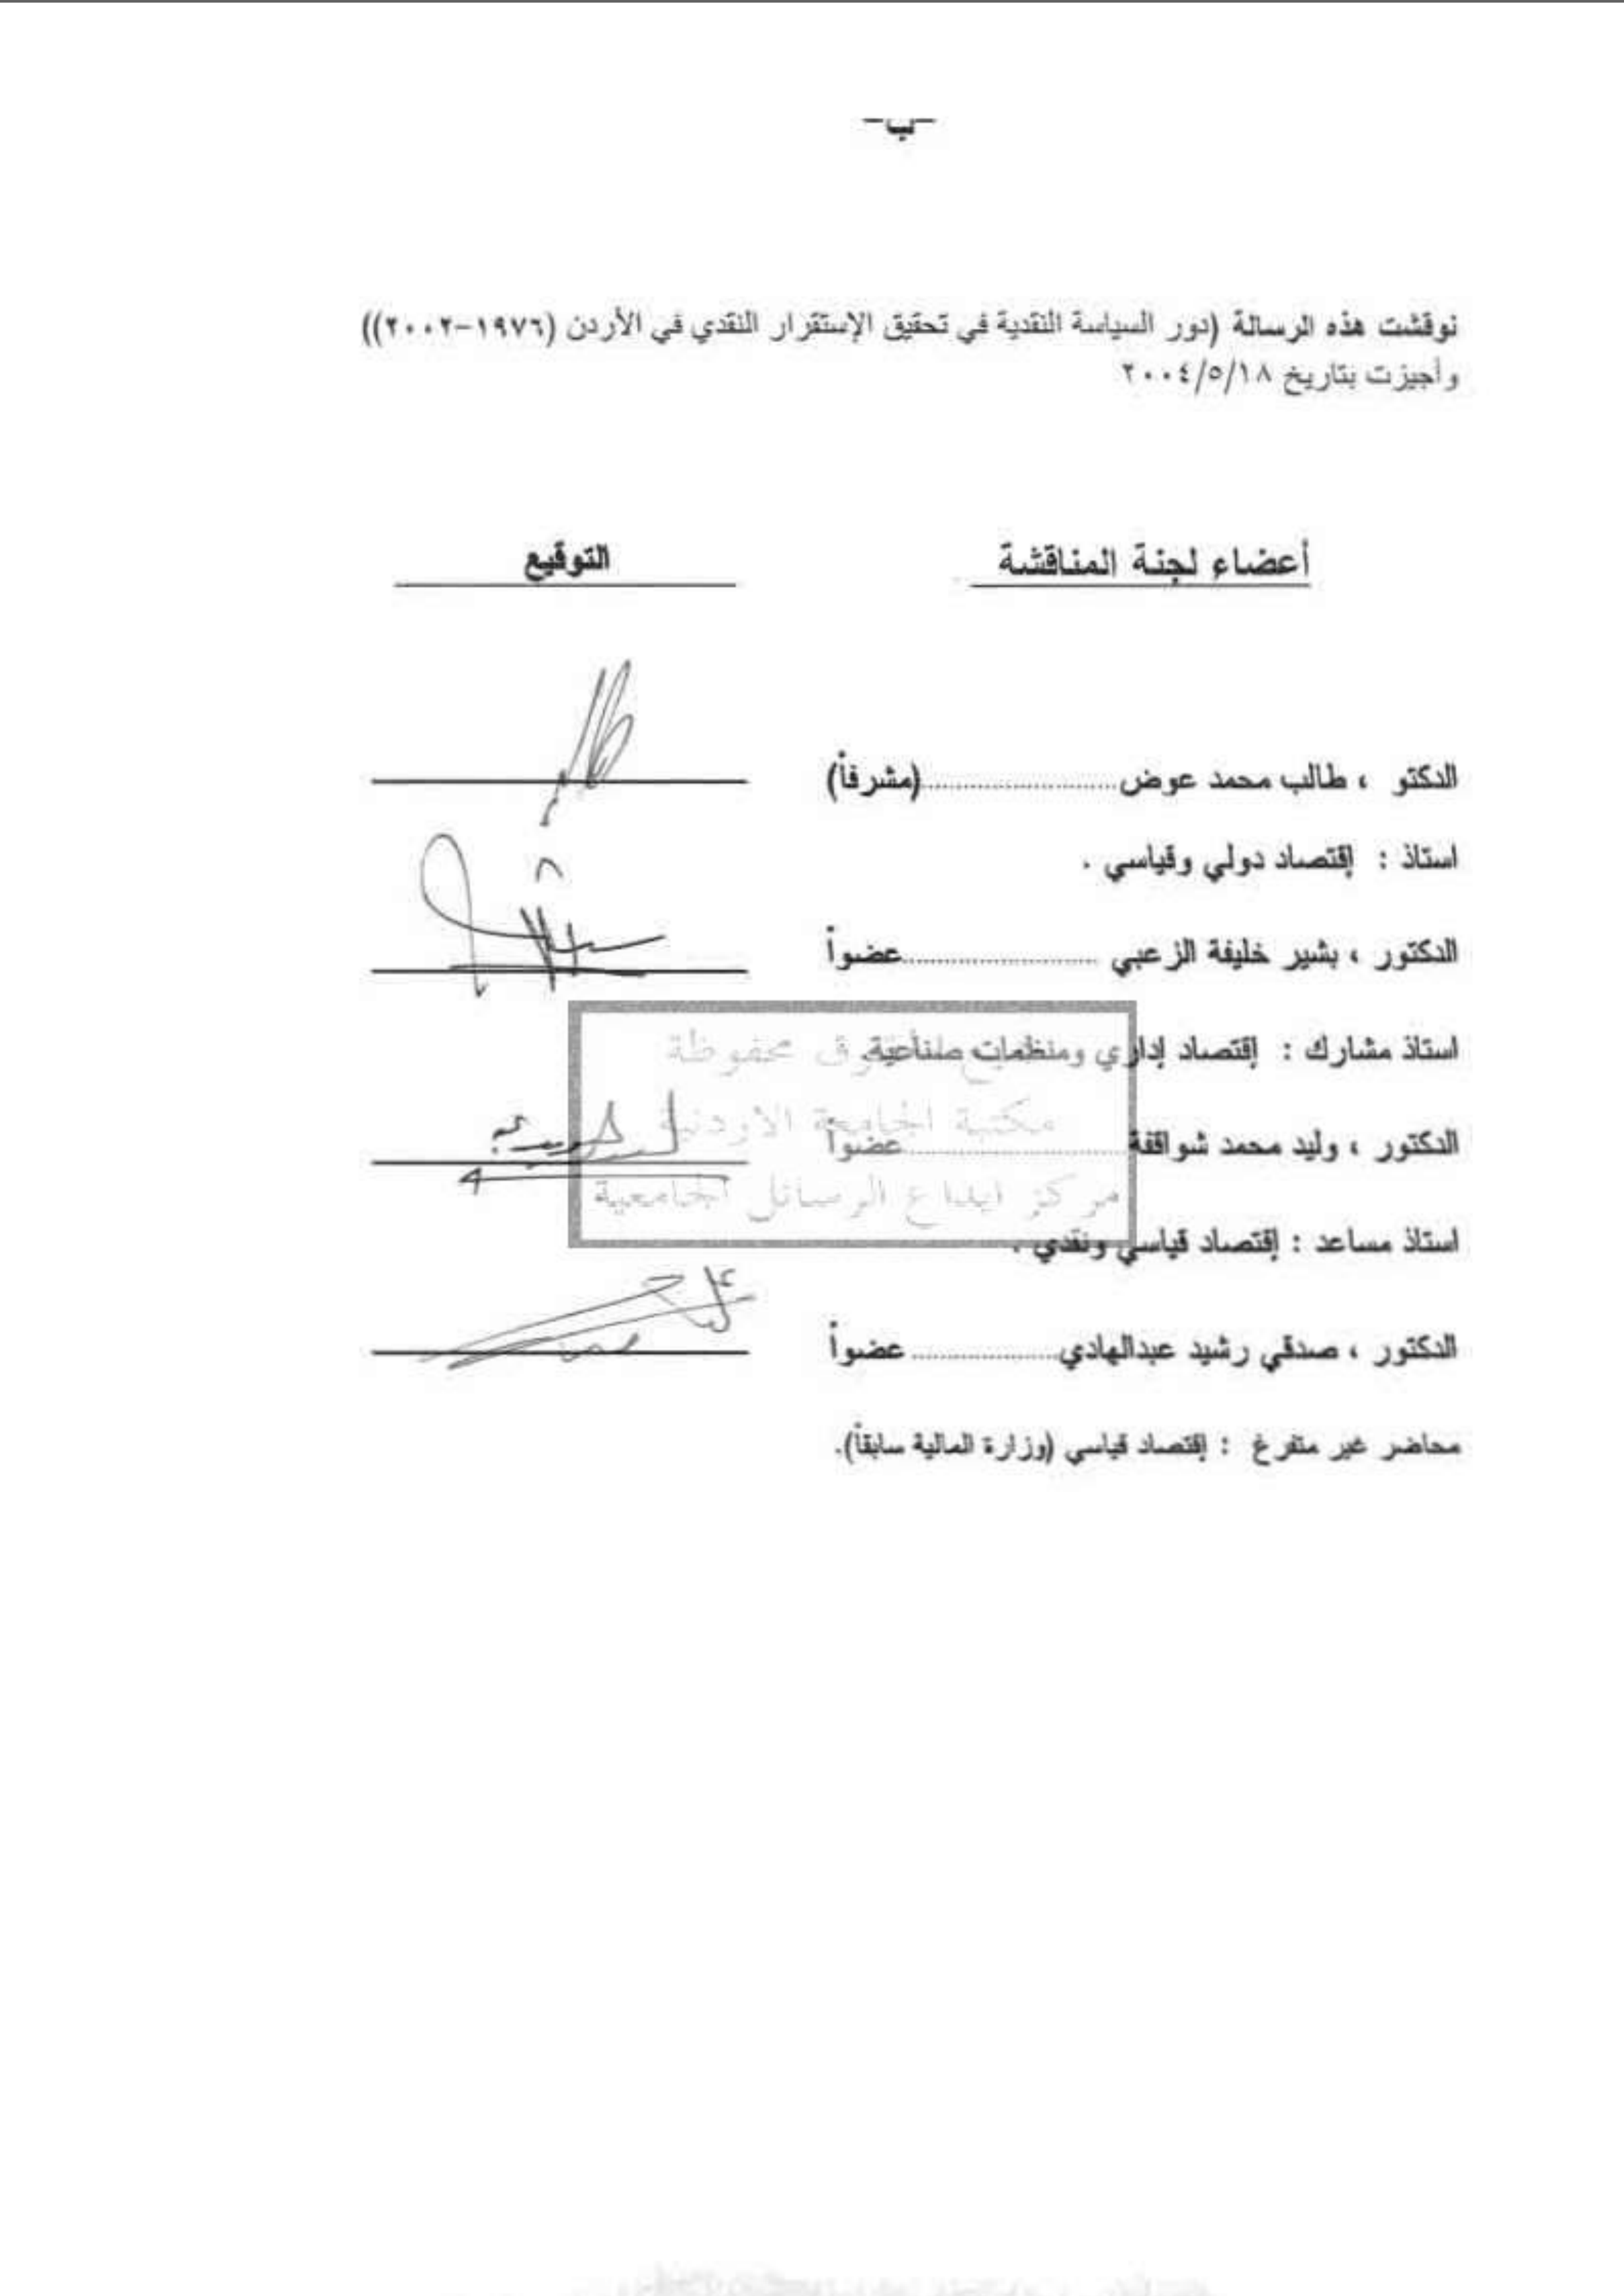 -ب-
نوقشت هذه الرسالة (دور السياسة النقدية في تحقيق الإستقرار النقدي في الأردن (١٩٧٦-٢٠٠٢))
وأجيزت بتاريخ ٢٠٠٤/٥/١٨
أعضاء لجنة المناقشة التوقيع
الدكتو ، طالب محمد عوض..........................(مشرفاً)
استاذ : إقتصاد دولي وقياسي .
الدكتور ، بشير خليفة الزعبي ..........................عضواً
استاذ مشارك : إقتصاد إداري ومنظمات صناعية.
الدكتور ، وليد محمد شواقفة..............................عضواً
استاذ مساعد : إقتصاد قياسي ونقدي .
الدكتور ، صدقي رشيد عبدالهادي................... عضواً
محاضر غير متفرغ : إقتصاد قياسي (وزارة المالية سابقاً).
محفوظة
مكتبة الجامعة الاردنية
مركز ايداع الرسائل الجامعية